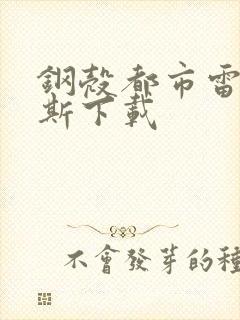 鋼殼都市雷
斯下載
不會發芽的種